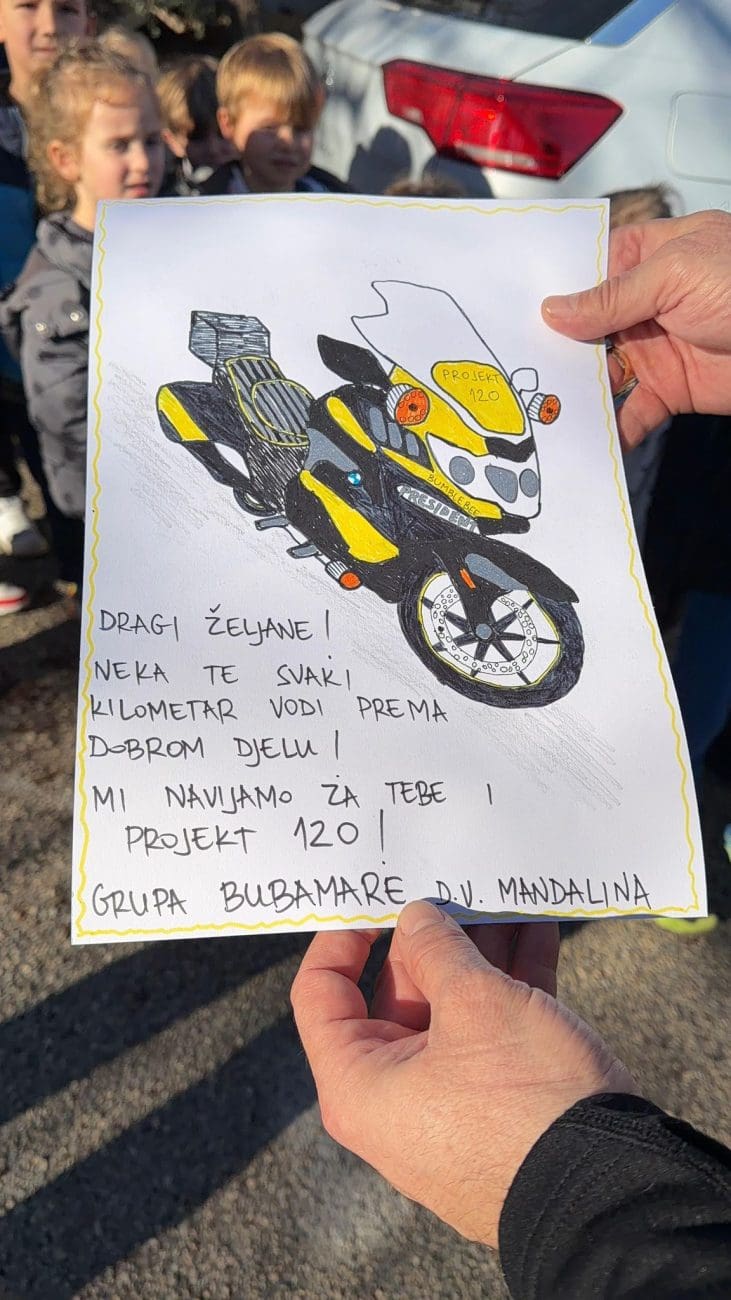 PROJEKT
120
BUMBLEBEE
PRESIDENT
DRAGI ŽELJANE!
NEKA TE SVAKI
KILOMETAR VODI PREMA
DOBROM DJELU!
MI NAVIJAMO ZA TEBE I
PROJEKT 120!
GRUPA BUBAMARE D.V. MANDALINA